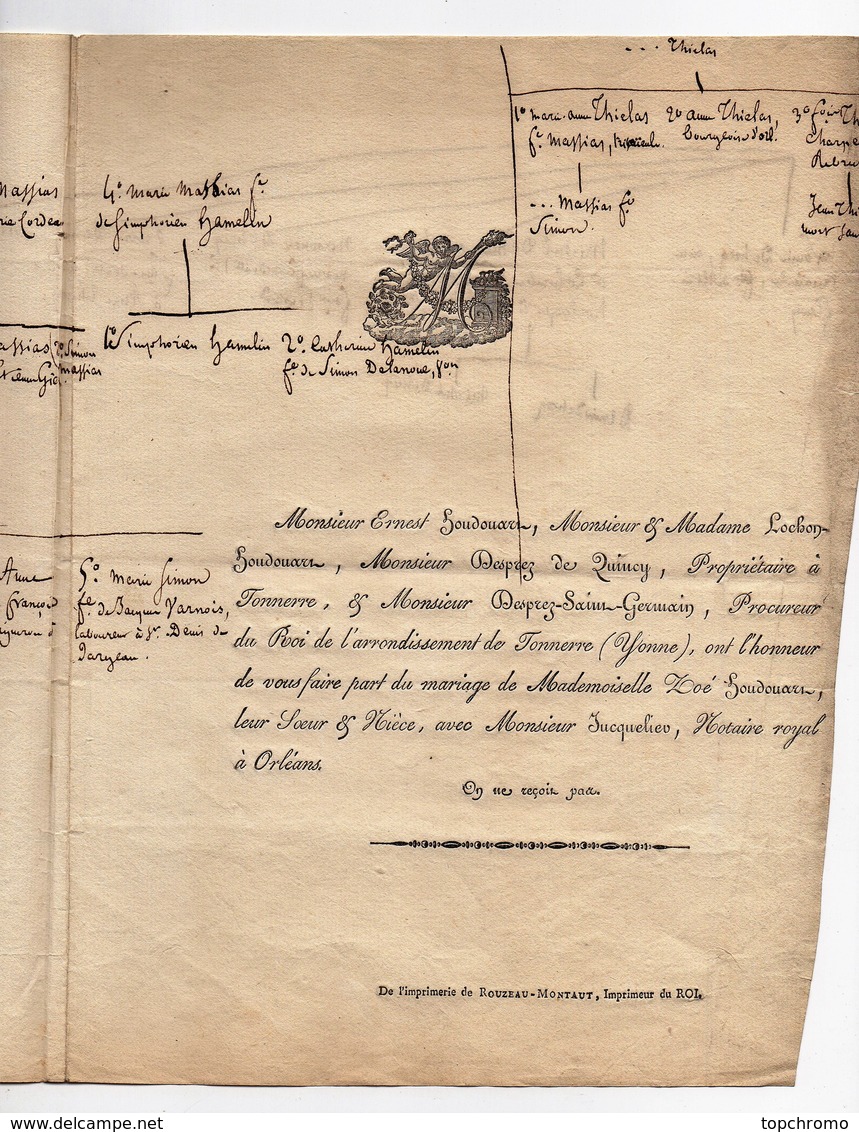 ... Thielas
1º marie-anne Thielas
fe. Massias, bisaïeule.
2º anne Thielas,
bourgeoise d'orl.
3º
... Massias fe.
Simon.
Massias
4º. Marie Massias fe.
de Simphorien Hamelin
1º Simphorien Hamelin
2º. Catherine Hamelin
fe. de Simon Delanoue, Von
2º. Simon
Massias
Anne
François
5º. Marie Simon
fe. de Jacques Varnois,
laboureur à St. Denis de
Jargeau.
M
Monsieur Ernest Houdouart, Monsieur & Madame Lochon-
Houdouart, Monsieur Desprez de Quincy, Propriétaire à
Tonnerre, & Monsieur Desprez-Saint-Germain, Procureur
du Roi de l'arrondissement de Tonnerre (Yonne), ont l'honneur
de vous faire part du mariage de Mademoiselle Zoé Houdouart,
leur Sœur & Nièce, avec Monsieur Jucqueliev, Notaire royal
à Orléans.
On ne reçoit pas.
De l'imprimerie de ROUZEAU-MONTAUT, Imprimeur du ROI.
topchromo